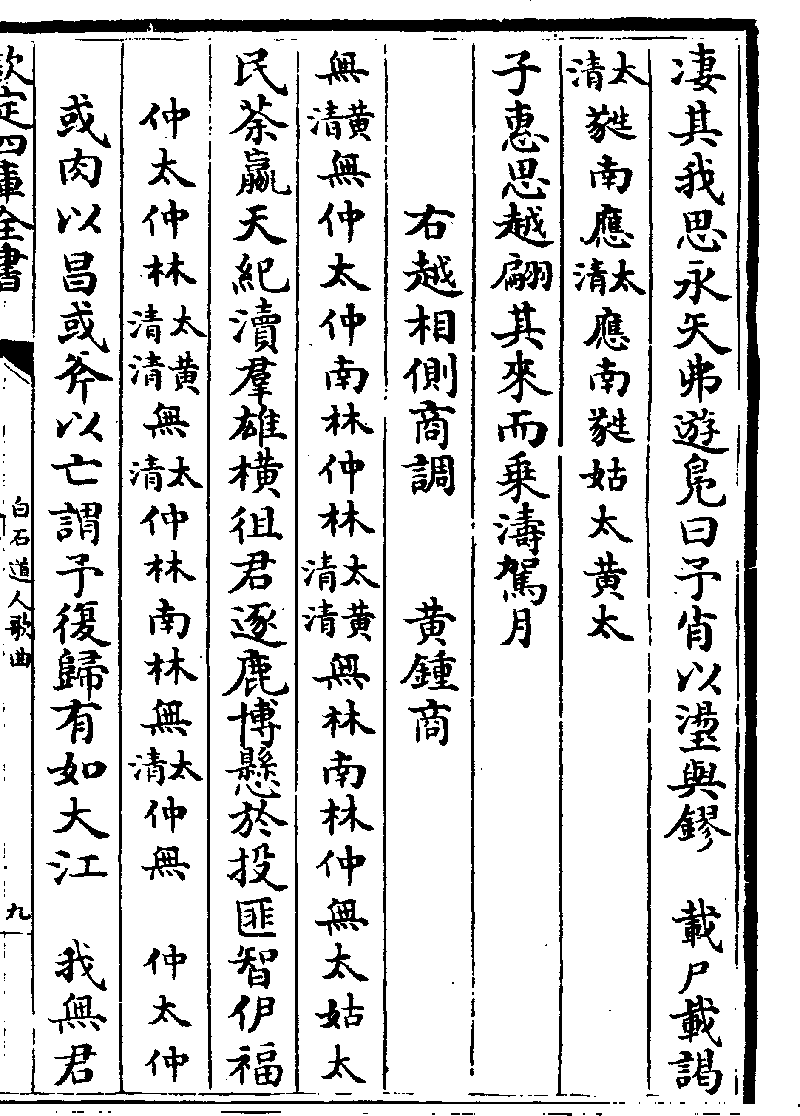 凄其我思永矢弗遊皃曰予肖以璗與鏐　載尸載謁
太清蕤南應太清應南蕤姑太黄太
子惠思越翩其來而乗濤駕月
右越相側商調　黄鍾商
無黄清無仲太仲南林仲林太清黄清無林南林仲無太姑太
民荼嬴天紀瀆羣雄横徂君逐鹿博懸於投匪智伊福
仲太仲林太清黄清無太清仲林南林無太清仲無　仲太仲
或肉以昌或斧以亡謂予復歸有如大江　我無君
欽定四庫全書
白石道人歌曲
九